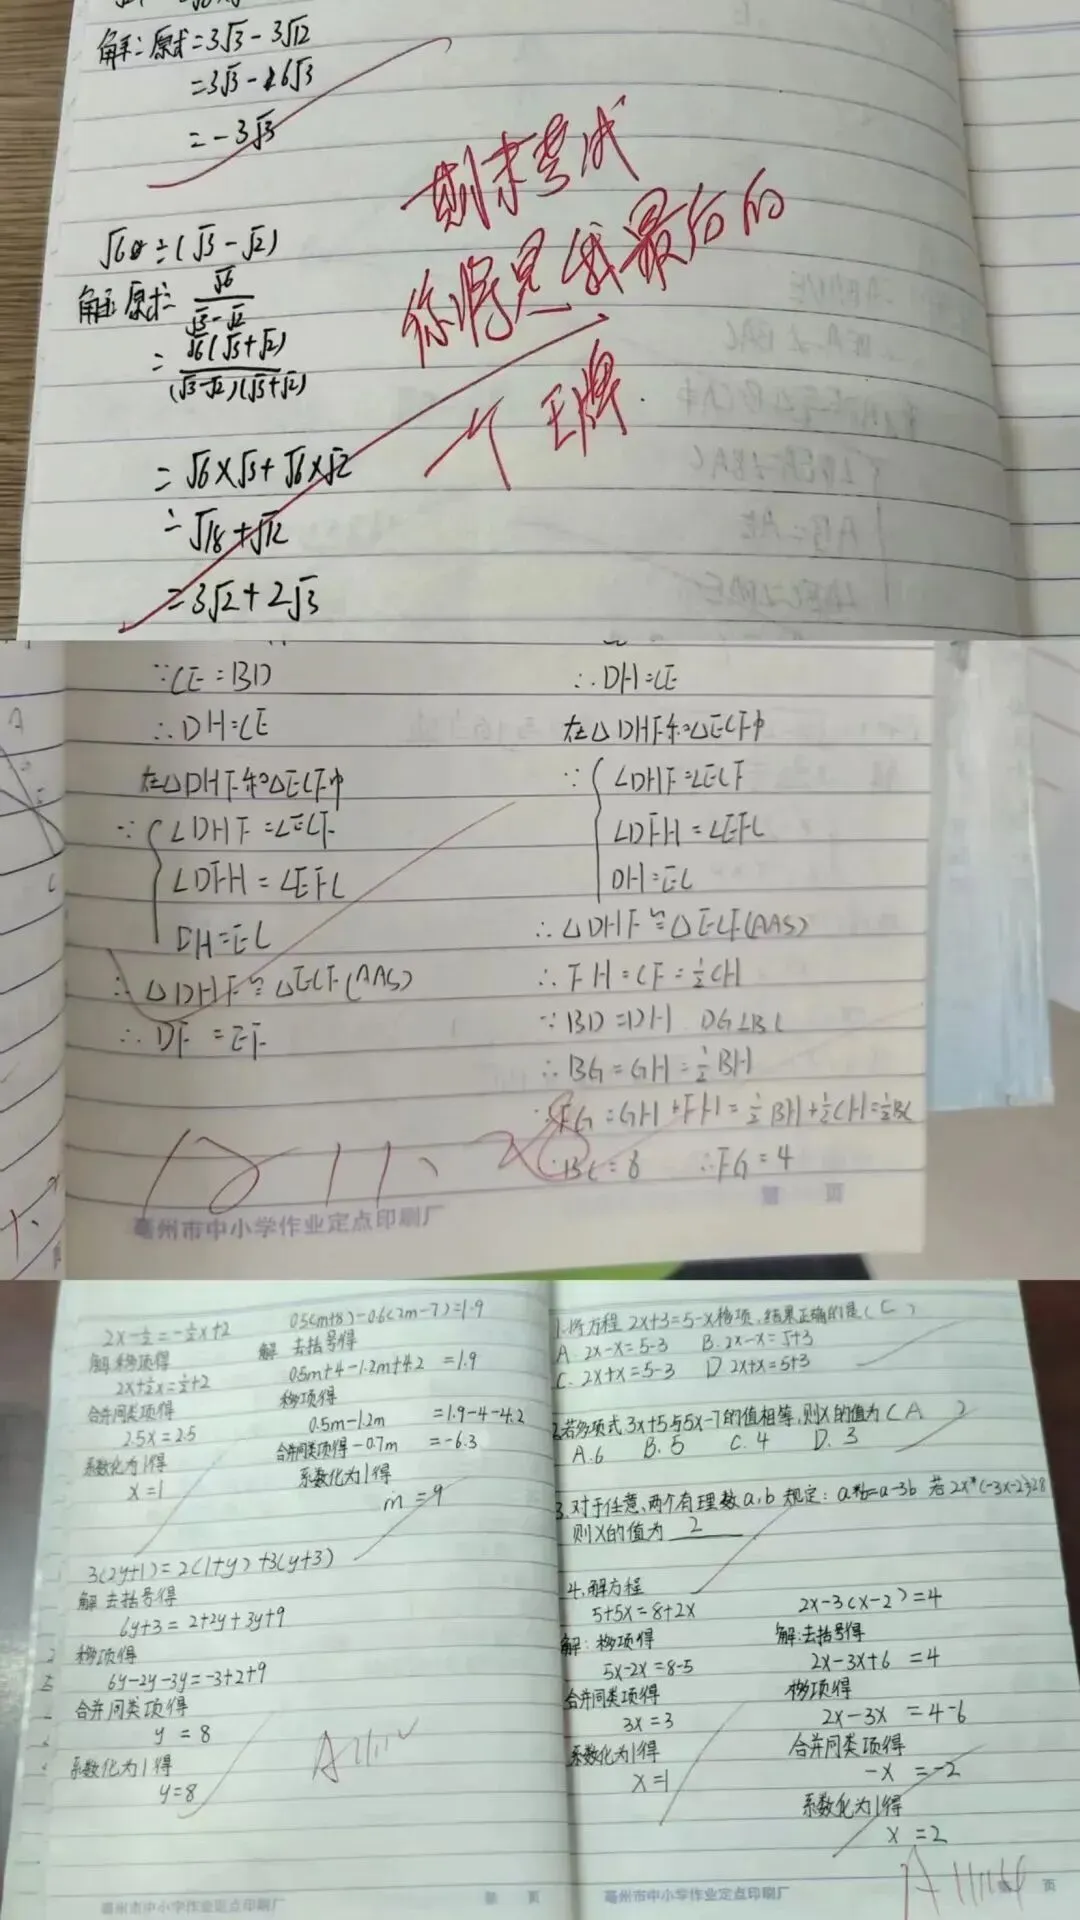 解：原式=3√3-3√12
=3√3-6√3
=-3√3
期末考试
你将是我最后的
一个王牌.
√6÷(√3-√2)
解：原式=√6/(√3-√2)
=√6(√3+√2)/(√3-√2)(√3+√2)
=√6×√3+√6×√2
=√18+√12
=3√2+2√3
∵CE=BD
∴DH=CE
在△DHF和△ECF中
∵{∠DHF=∠ECF
∠DFH=∠EFC
DH=EC
∴△DHF≌△ECF(AAS)
∴DF=EF
∴DH=CE
在△DHF和△ECF中
∵{∠DHF=∠ECF
∠DFH=∠EFC
DH=EC
∴△DHF≌△ECF(AAS)
∴FH=CF=½CH
∵BD=DH DG⊥BC
∴BG=GH=½BH
∴FG=GH+FH=½BH+½CH=½BC
∵BC=8 ∴FG=4
亳州市中小学作业定点印刷厂
第 页
2x-½=-½x+2
解 移项得
2x+½x=½+2
合并同类项得
2.5x=2.5
系数化为1得
x=1
0.5(m+8)-0.6(2m-7)=1.9
解 去括号得
0.5m+4-1.2m+4.2=1.9
移项得
0.5m-1.2m=1.9-4-4.2
合并同类项得-0.7m=-6.3
系数化为1得
m=9
3(2y+1)=2(1+y)+3(y+3)
解 去括号得
6y+3=2+2y+3y+9
移项得
6y-2y-3y=-3+2+9
合并同类项得
y=8
系数化为1得
y=8
亳州市中小学作业定点印刷厂
第 页
1.将方程2x+3=5-x移项,结果正确的是(C)
A. 2x-x=5-3 B. 2x-x=5+3
C. 2x+x=5-3 D 2x+x=5+3
2.若多项式3x+5与5x-7的值相等,则x的值为(A )
A.6 B.5 C.4 D.3
3.对于任意两个有理数a,b 规定:a*b=a-3b 若2x*(-3x-2)=28
则x的值为 2
4.解方程
5+5x=8+2x
解:移项得
5x-2x=8-5
合并同类项得
3x=3
系数化为1得
x=1
2x-3(x-2)=4
解:去括号得
2x-3x+6=4
移项得
2x-3x=4-6
合并同类项得
-x=-2
系数化为1得
x=2
亳州市中小学作业定点印刷厂
第 页